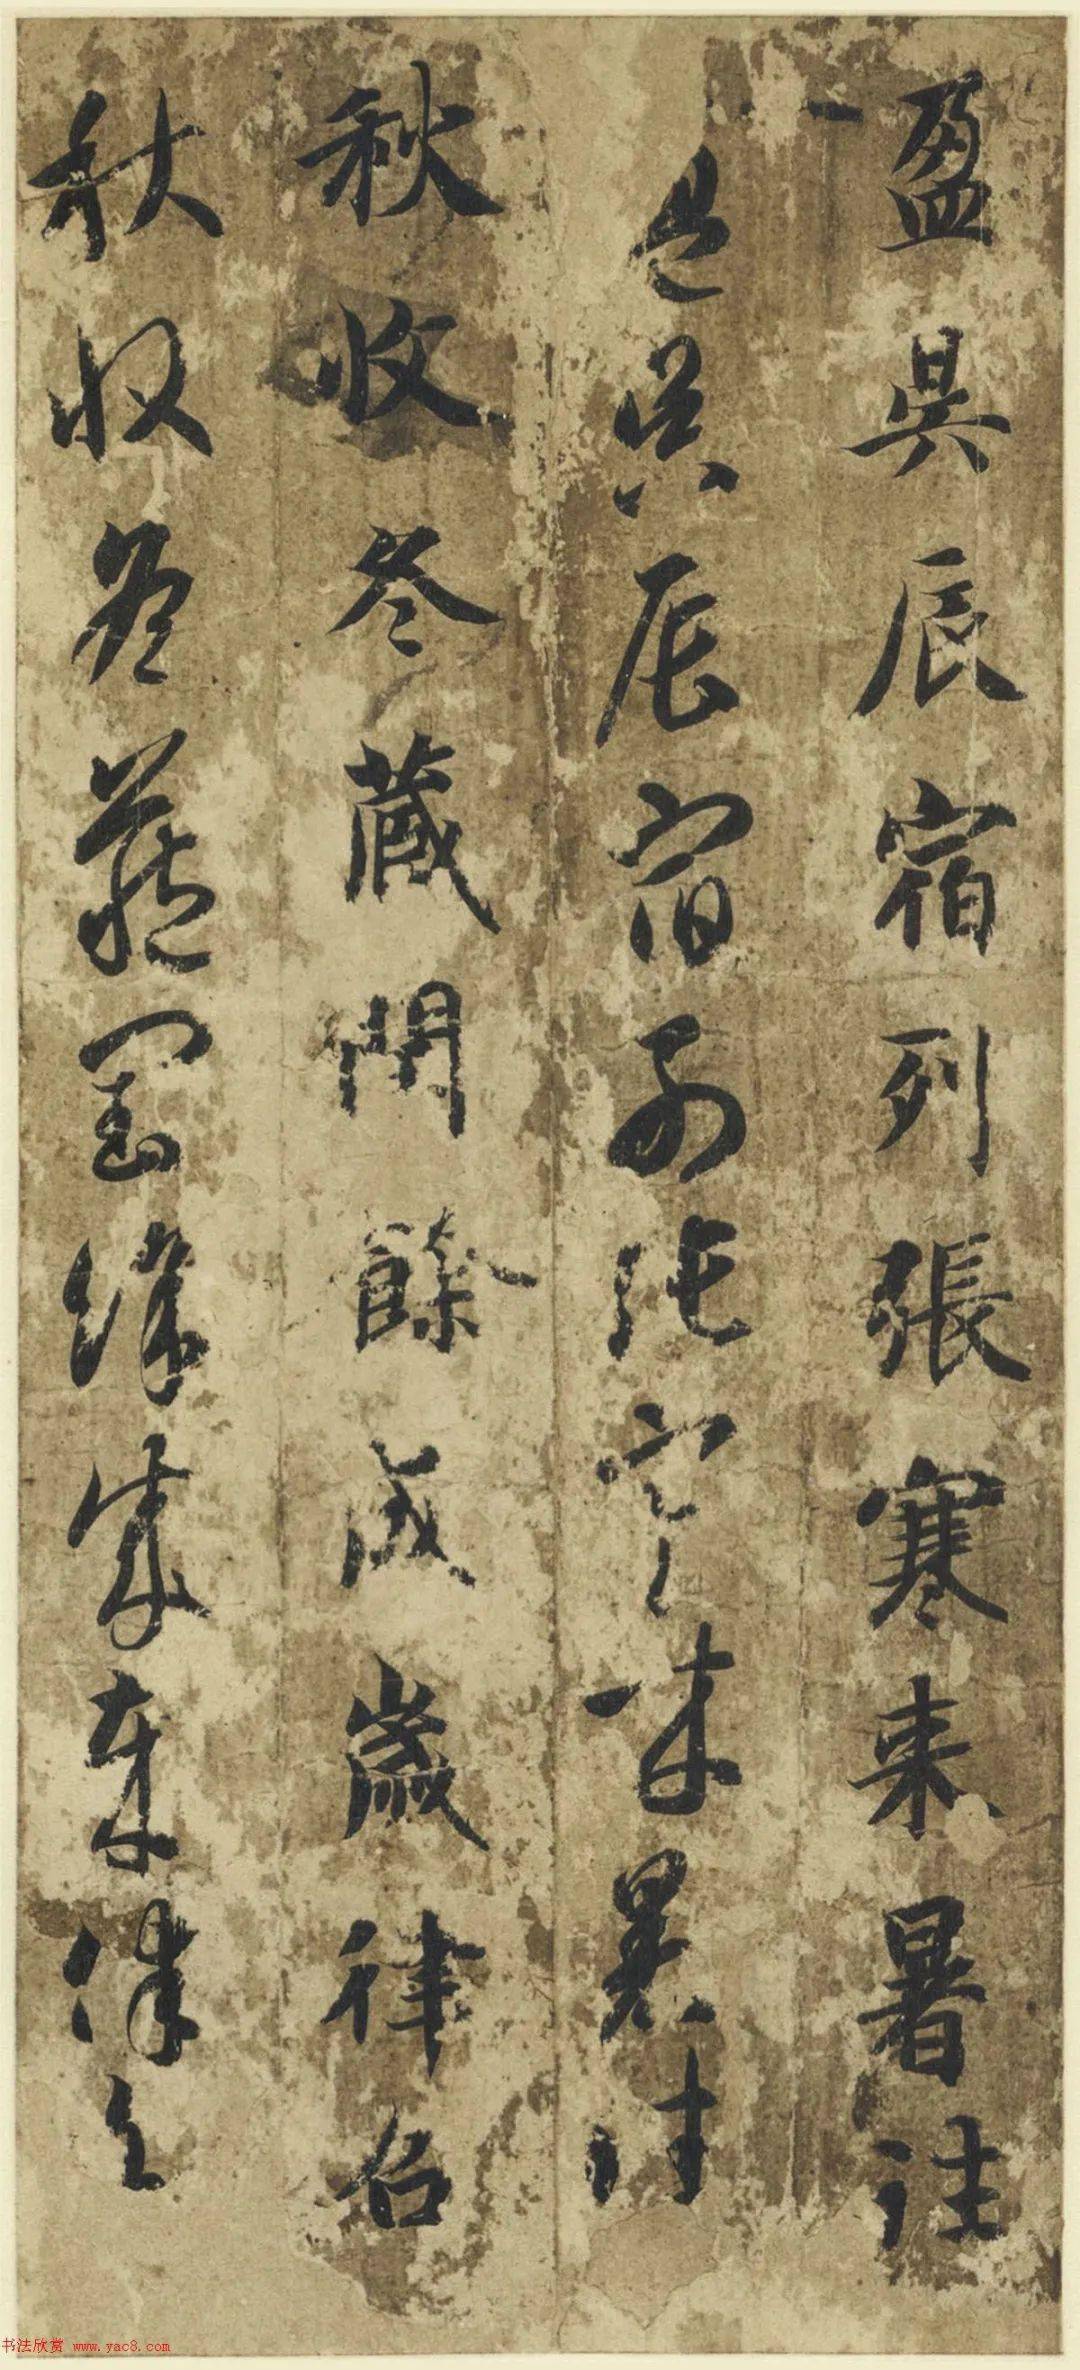 盈昃辰宿列張寒来暑往
盈昃辰宿列張寒来暑往
秋收冬蔵閏餘成歲律召
秋收冬藏閏餘成歲律召
书法欣赏 www.yac8.com